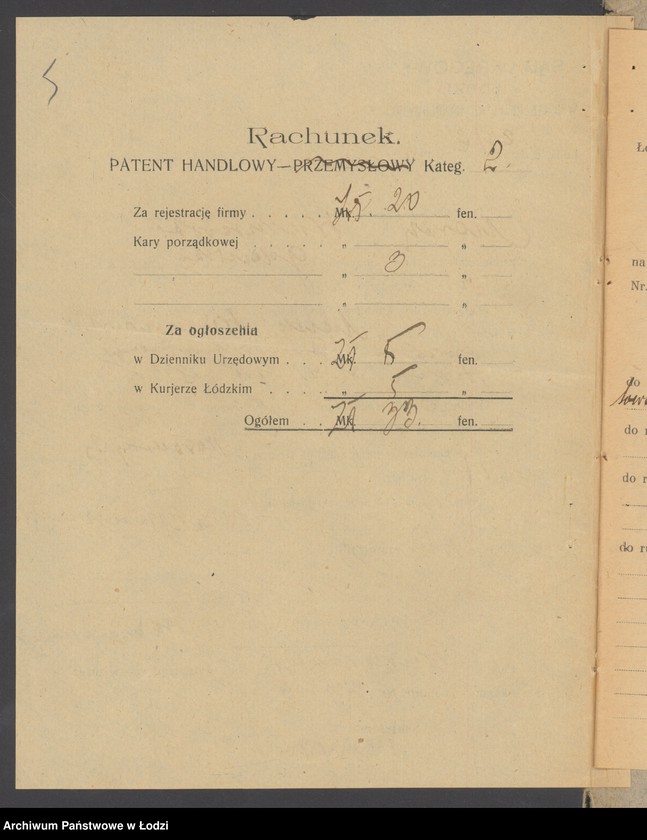 5
Rachunek.
PATENT HANDLOWY—PRZEMYSŁOWY Kateg. 2.
Za rejestrację firmy . . . . . Mk. 20 fen.
Kary porządkowej . . . . . „ „
„ 3 „
„ „
Za ogłoszenia
w Dzienniku Urzędowym . . . Mk. 5 fen.
w Kurjerze Łódzkim . . . . „ 5 „
Ogółem . . Mk. 33. fen.
na
Nr.
do
do r
do r
do r
Archiwum Państwowe w Łodzi